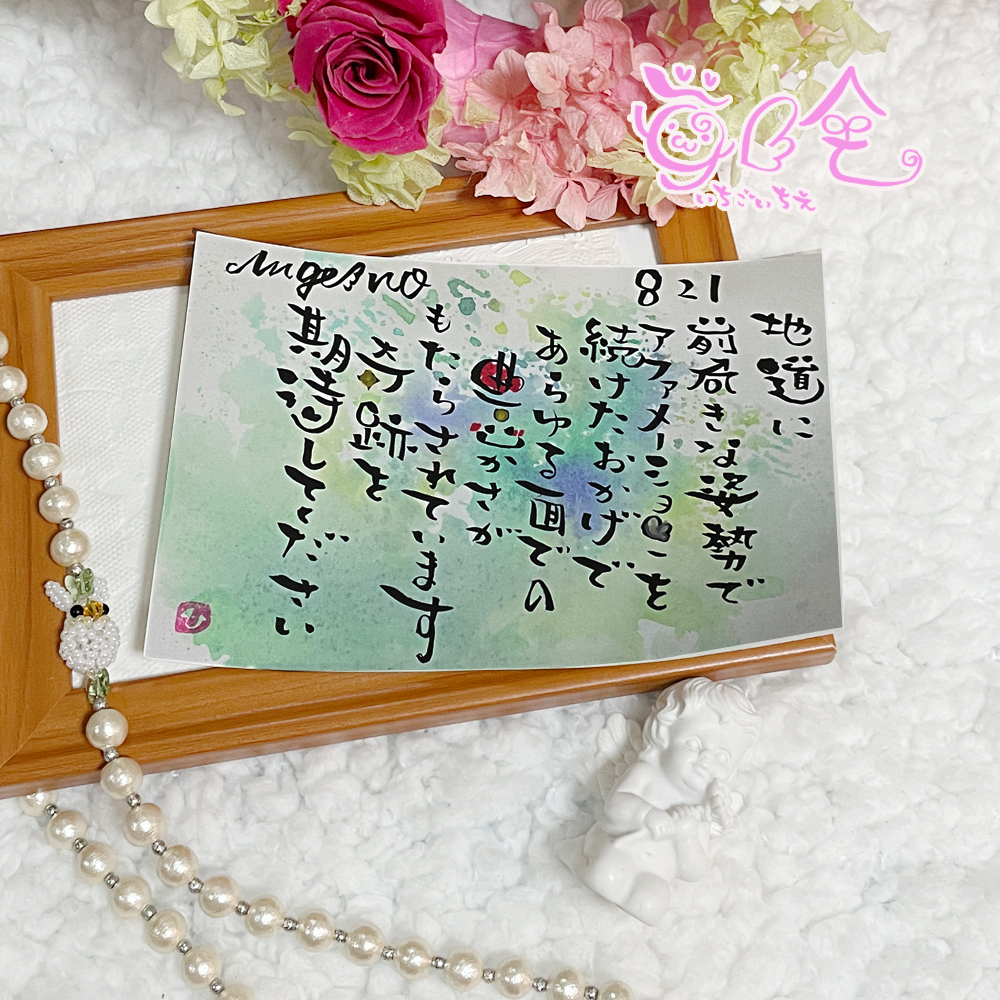 いちごいちえ
Angel no
821
地道に
前向きな姿勢で
アファメーションを
続けたおかげで
あらゆる面での
豊かさが
もたらされています
奇跡を
期待してください